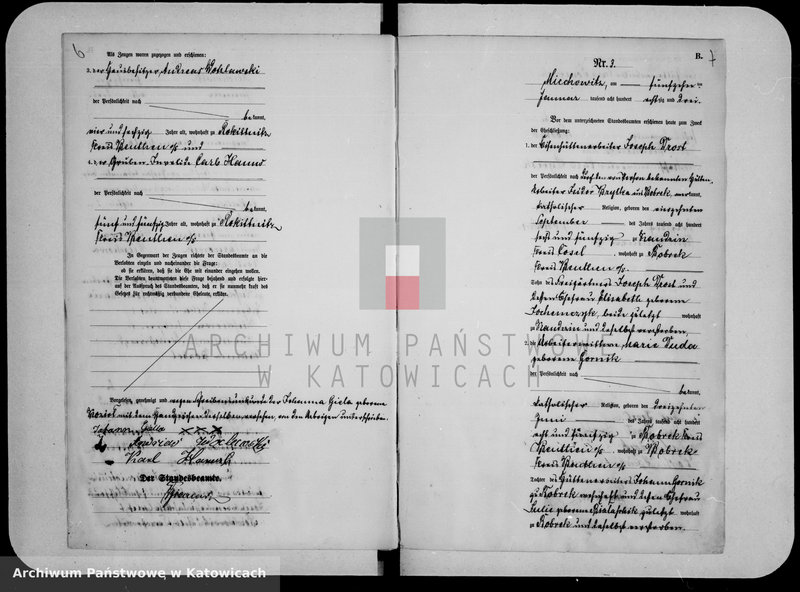 6
Als Zeugen waren zugezogen und erschienen:
3. der Hausbesitzer Andreas Koslawski
der Persönlichkeit nach
bekannt,
vier und sechzig Jahre alt, wohnhaft zu Rokittnitz
Kreis Beuthen O/S und
4. der Gruben-Invalide Carl Hanus
der Persönlichkeit nach
bekannt,
fünf und fünfzig Jahre alt, wohnhaft zu Rokittnitz
Kreis Beuthen O/S
In Gegenwart der Zeugen richtete der Standesbeamte an die
Verlobten einzeln und nacheinander die Frage:
ob sie erklären, daß sie die Ehe mit einander eingehen wollen.
Die Verlobten beantworteten diese Frage bejahend und erfolgte hier-
auf der Ausspruch des Standesbeamten, daß er sie nunmehr kraft des
Gesetzes für rechtmäßig verbundene Eheleute erkläre.
Vorgelesen, genehmigt und wegen Schreibensunkunde der Johanna Giela geborene
mit dem Handzeichen derselben versehen, von den Uebrigen unterschrieben.
xxx
Karl
Der Standesbeamte.
B.
7
Nr. 3.
Miechowitz, am fünfzehnten
Januar tausend acht hundert achtzig und drei.
Vor dem unterzeichneten Standesbeamten erschienen heute zum Zweck
der Eheschließung:
1. der Eisenhüttenarbeiter Joseph Drost
der Persönlichkeit nach durch den von Person bekannten Hütten-
arbeiter Feodor aus Bobrek anerkannt,
katholischer Religion, geboren den vierzehnten
September des Jahres tausend acht hundert
sechs und fünfzig zu Kandrzin
Kreis Cosel, wohnhaft zu Bobrek
Kreis Beuthen O/S.
Sohn des Freigärtners Joseph Drost und
dessen Ehefrau Elisabeth geborene
beide zuletzt wohnhaft
zu Kandrzin und daselbst verstorben.
2. die Arbeiterwittwe Marie Duda
geborene Gornik
der Persönlichkeit nach
bekannt,
katholischer Religion, geboren den dreizehnten
Juni des Jahres tausend acht hundert
acht und fünfzig zu Bobrek Kreis
Beuthen O/S, wohnhaft zu Bobrek
Kreis Beuthen O/S
Tochter des Johann Gornik
zu Bobrek wohnhaft und dessen Ehefrau
Julie geborene zuletzt wohnhaft
zu Bobrek und daselbst verstorben.
ARCHIWUM PAŃSTWOWE
W KATOWICACH
Archiwum Państwowe w Katowicach